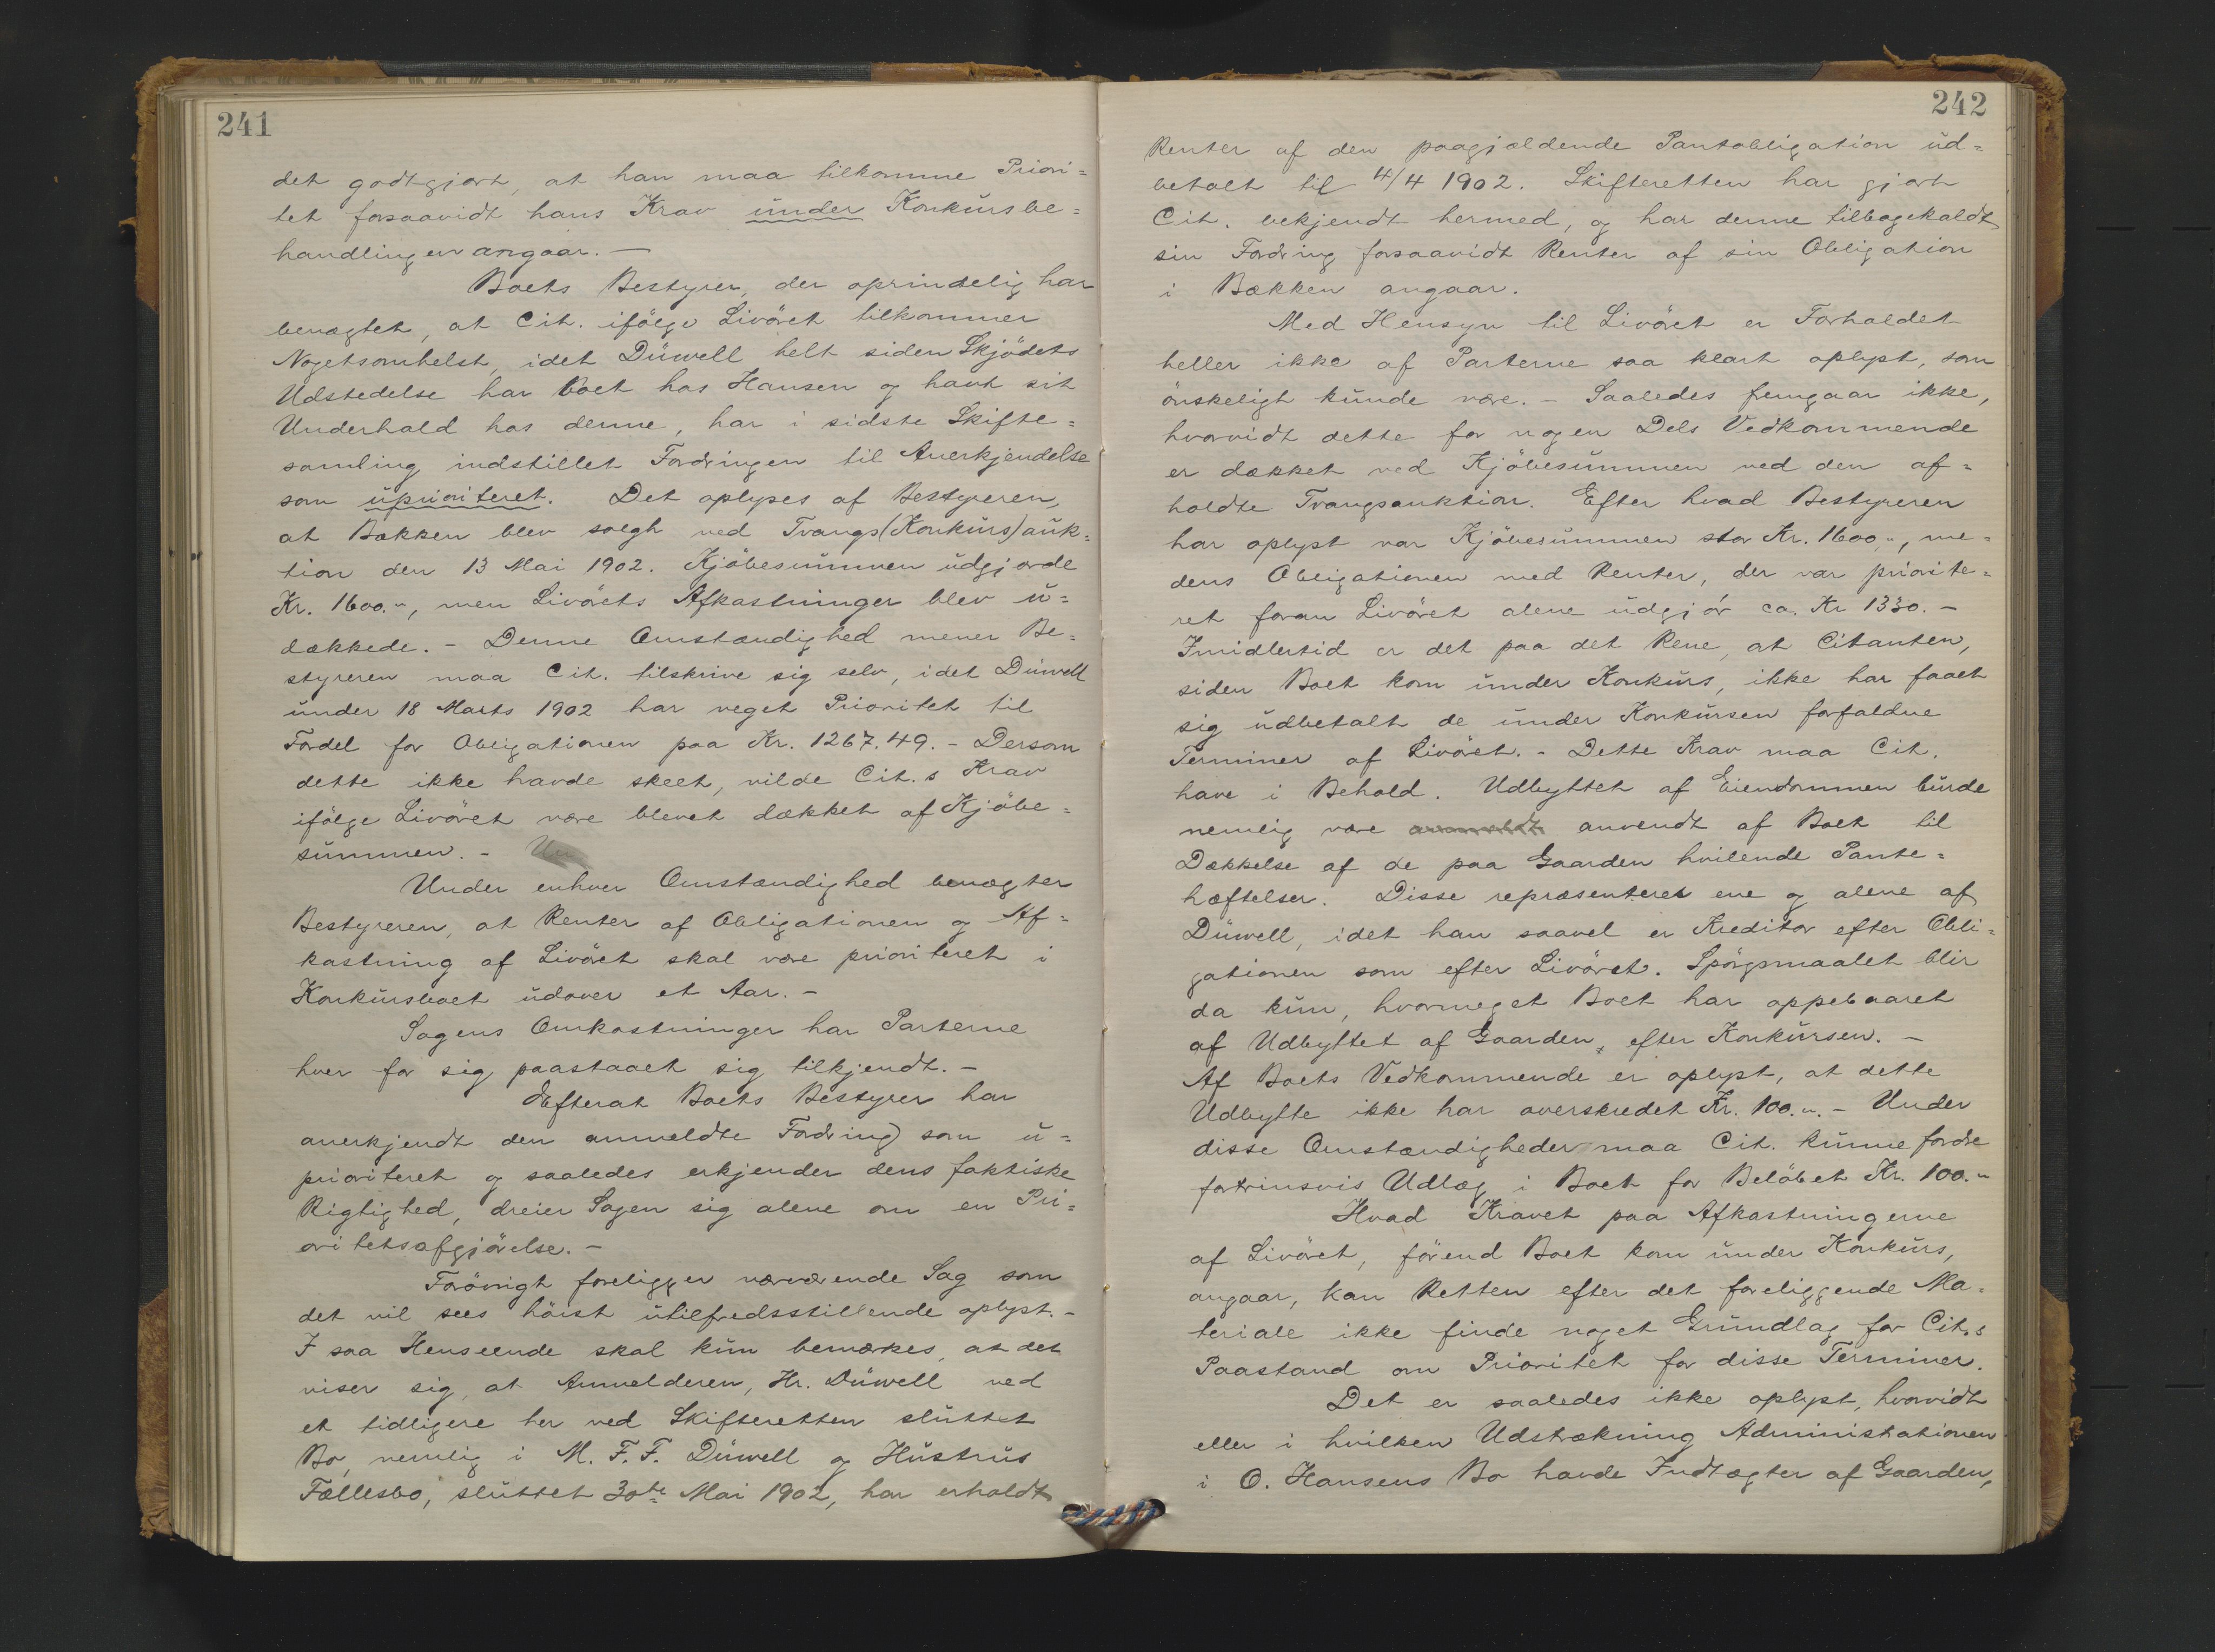 241
det godtgjort, at han maa tilkomme Priori=
tet forsaavidt hans Krav under Konkursbe=
handlingen angaar. —
Boets Bestyrer, der oprindelig har
benægtet, at Cit. ifölge Livöret tilkommer
Nogetsomhelst, idet Düwell helt siden Skjödets
Udstedelse har boet hos Hansen og havt sit
Underhold hos denne, har i sidste Skifte=
samling indstillet Fordringen til Anerkjendelse
som uprioriteret. Det oplyses af Bestyreren,
at Bækken blev solgt ved Tvangs(Konkurs)auk=
tion den 13 Mai 1902. Kjöbesummen udgjorde
Kr. 1600.", men Livörets Afkastninger blev u=
dækkede. - Denne Omstændighed mener Be=
styreren maa Cit. tilskrive sig selv, idet Düwell
under 18 Marts 1902 har veget Prioritet til
Fordel for Obligationen paa Kr. 1267.49. - Dersom
dette ikke havde skeet, vilde Cit.s Krav
ifölge Livöret være blevet dækket af Kjöbe=
summen. - Un
Under enhver Omstændighed benægter
Bestyreren, at Renter af Obligationen og Af=
kastning af Livöret skal være prioriteret i
Konkursboet udover et Aar. -
Sagens Omkostninger har Parterne
hver for sig paastaaet sig tilkjendt. -
Efterat Boets Bestyrer har
anerkjendt den anmeldte Fordring) som u=
prioriteret og saaledes erkjender dens faktiske
Rigtighed, dreier Sagen sig alene om en Pri=
oritetsafgjörelse. -
Forövrigt foreligger nærværende Sag som
det vil sees höist utilfredsstillende oplyst. -
I saa Henseende skal kun bemærkes, at det
viser sig, at Anmelderen, Hr. Düwell ved
et tidligere her ved Skifteretten sluttet
Bo, nemlig i M. F. F. Düwell og Hustrus
Fællesbo, sluttet 30te Mai 1902, har erholdt
242
Renter af den paagjældende Pantobligation ud=
betalt til 4/4 1902. Skifteretten har gjort
Cit. bekjendt hermed, og har denne tilbagekaldt
sin Fordring forsaavidt Renter af sin Obligation
i Bækken angaar.
Med Hensyn til Livöret er Forholdet
heller ikke af Parterne saa klart oplyst, som
önskeligt kunde være. - Saaledes fremgaar ikke,
hvorvidt dette for nogen Dels Vedkommende
er dækket ved Kjöbesummen ved den af=
holdte Tvangsauktion. Efter hvad Bestyreren
har oplyst var Kjöbesummen stor Kr. 1600,", me=
dens Obligationen med Renter, der var priorite=
ret foran Livöret alene udgjör ca. Kr 1330. -
Imidlertid er det paa det Rene, at Citanten,
siden Boet kom under Konkurs, ikke har faaet
sig udbetalt de under Konkursen forfaldne
Terminer af Livöret. - Dette Krav maa Cit.
have i Behold. Udbyttet af Eiendommen burde
nemlig være anvendt af Boet til
Dækkelse af de paa Gaarden hvilende Pante=
hæftelser. Disse repræsenteres ene og alene af
Düwell, idet han saavel er Kreditor efter Obli=
gationen som efter Livöret. Spörgsmaalet blir
da kun, hvormeget Boet har oppebaaret
af Udbyttet af Gaarden, efter Konkursen. -
Af Boets Vedkommende er oplyst, at dette
Udbytte ikke har overskredet Kr. 100.". - Under
disse Omstændigheder maa Cit. kunne fordre
fortrinsvis Udlæg i Boet for Belöbet Kr. 100."
Hvad Kravet paa Afkastningerne
af Livöret, förend Boet kom under Konkurs,
angaar, kan Retten efter det foreliggende Ma=
teriale ikke finde noget Grundlag for Cit.s
Paastand om Prioritet for disse Terminer.
Det er saaledes ikke oplyst, hvorvidt
eller i hvilken Udstrækning Administrationen
i O. Hansens Bo havde Indtægter af Gaarden,